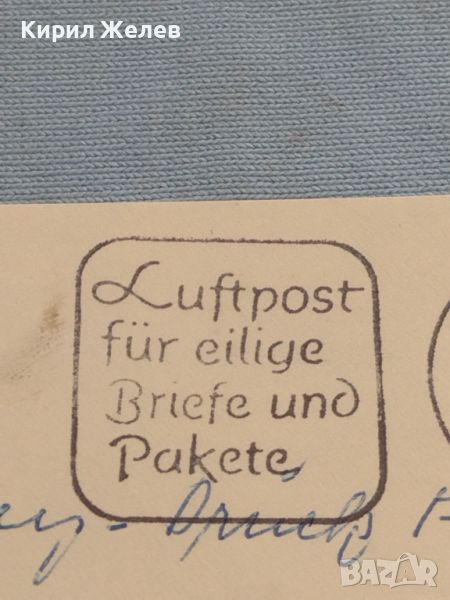 Кирил Желев
Luftpost
für eilige
Briefe und
Pakete
BAZAR